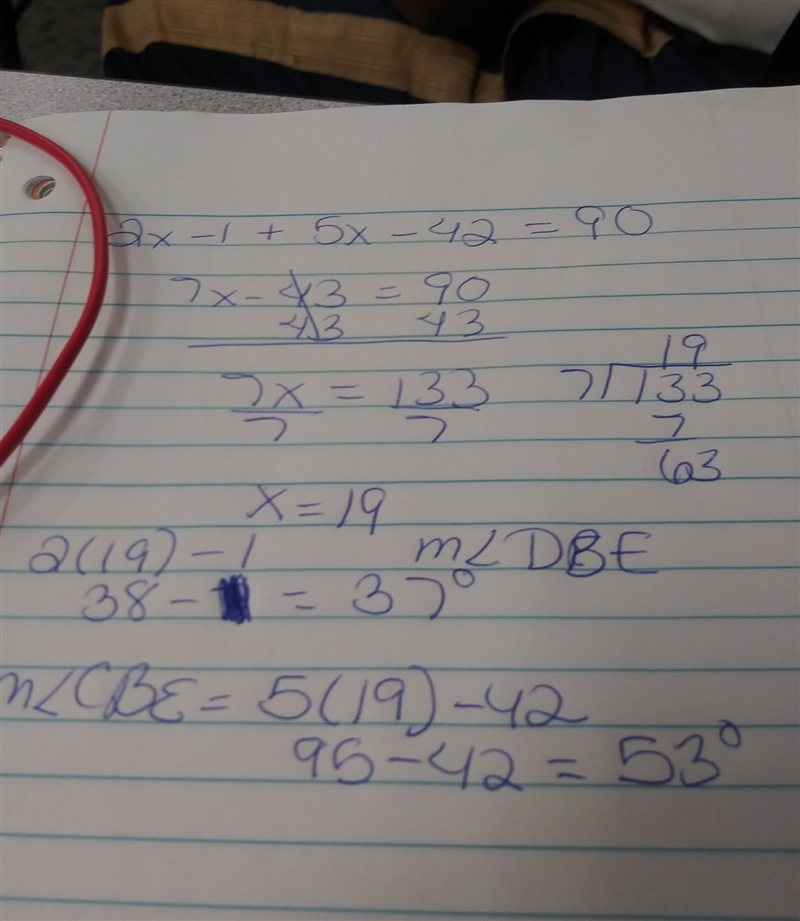 2x - 1 + 5x - 42 = 90
7x - 43 = 90
43 43
7x = 133
7 7
19
7 133
7
63
x = 19
2(19) - 1 m∠DBE
38 - 1 = 37°
m∠CBE = 5(19) - 42
95 - 42 = 53°